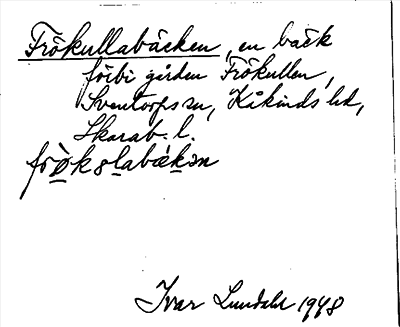 Frökullabäcken, en bäck
förbi gården Frökullen,
Sventorps sn, Kåkinds hd,
Skarab. l.
frö̀kɞlabæ̀kən
Ivar Lundahl 1948